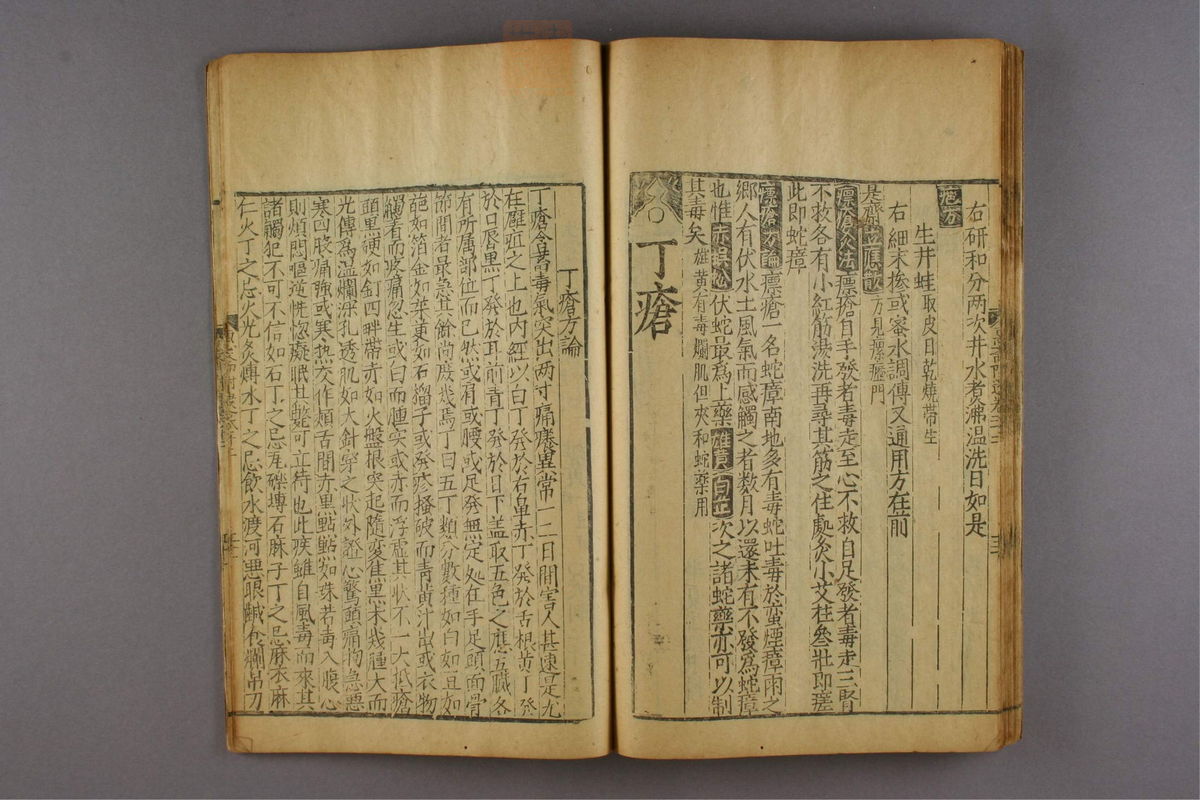 右研和分两次井水煮沸温洗日如是
疤方
生井蛙取皮日乾燒帶生
右細末摻或蜜水調傅又通用方在前
是齋立應散方見瘰癧門
瘭瘡灸法瘭瘡自手發者毒走至心不救自足發者毒走三腎
不救各有小紅筋湯洗再尋其筋之住處灸小艾柱叁壯即瘥
此即蛇瘴
瘭瘡方論瘭瘡一名蛇瘴南地多有毒蛇吐毒於蛮煙瘴雨之
郷人有伏水土風氣而感觸之者数月以還未有不發為蛇瘴
也惟赤蜈蚣伏蛇最為上藥雄黄白芷次之諸蛇藥亦可以制
其毒矣雄黄有毒爛肌但夾和蛇藥用
丁瘡
丁瘡方論
丁瘡含蓄毒氣突出两寸痛癢異常一二日間害人甚速是尤
在癰疽之上也内經以白丁發於右鼻赤丁發於舌根黄丁發
於口唇黒丁發於耳前青丁發於目下盖取五色之應五臟各
有所属部位而已然或肩或腰或足發無定処在手足頭面骨
節間者最急其餘尚庶幾焉丁曰五丁類分數種如白如豆如
葩如箔金如茱萸如石榴子或發痒搔破而青黄汁出或衣物
觸着而疼痛忽生或白而腫实或赤而浮虚其狀不一大抵瘡
頭黒硬如釘四畔帶赤如火盤根突起随変焦黒未幾腫大而
光傳為温爛深孔透肌如大針穿之状外證心驚頭痛拘急惡
寒四肢痛強或寒热交作頬舌間赤黒點點如珠若毒入腹心
則煩悶嘔逆恍惚癡眠其斃可立待也此疾雖自風毒而來其
諸觸犯不可不信如石丁之忌瓦礫磚石麻子丁之忌麻衣麻
仁火丁之忌火光灸煿水丁之忌飲水渡河悪眼鹹食爛吊刀